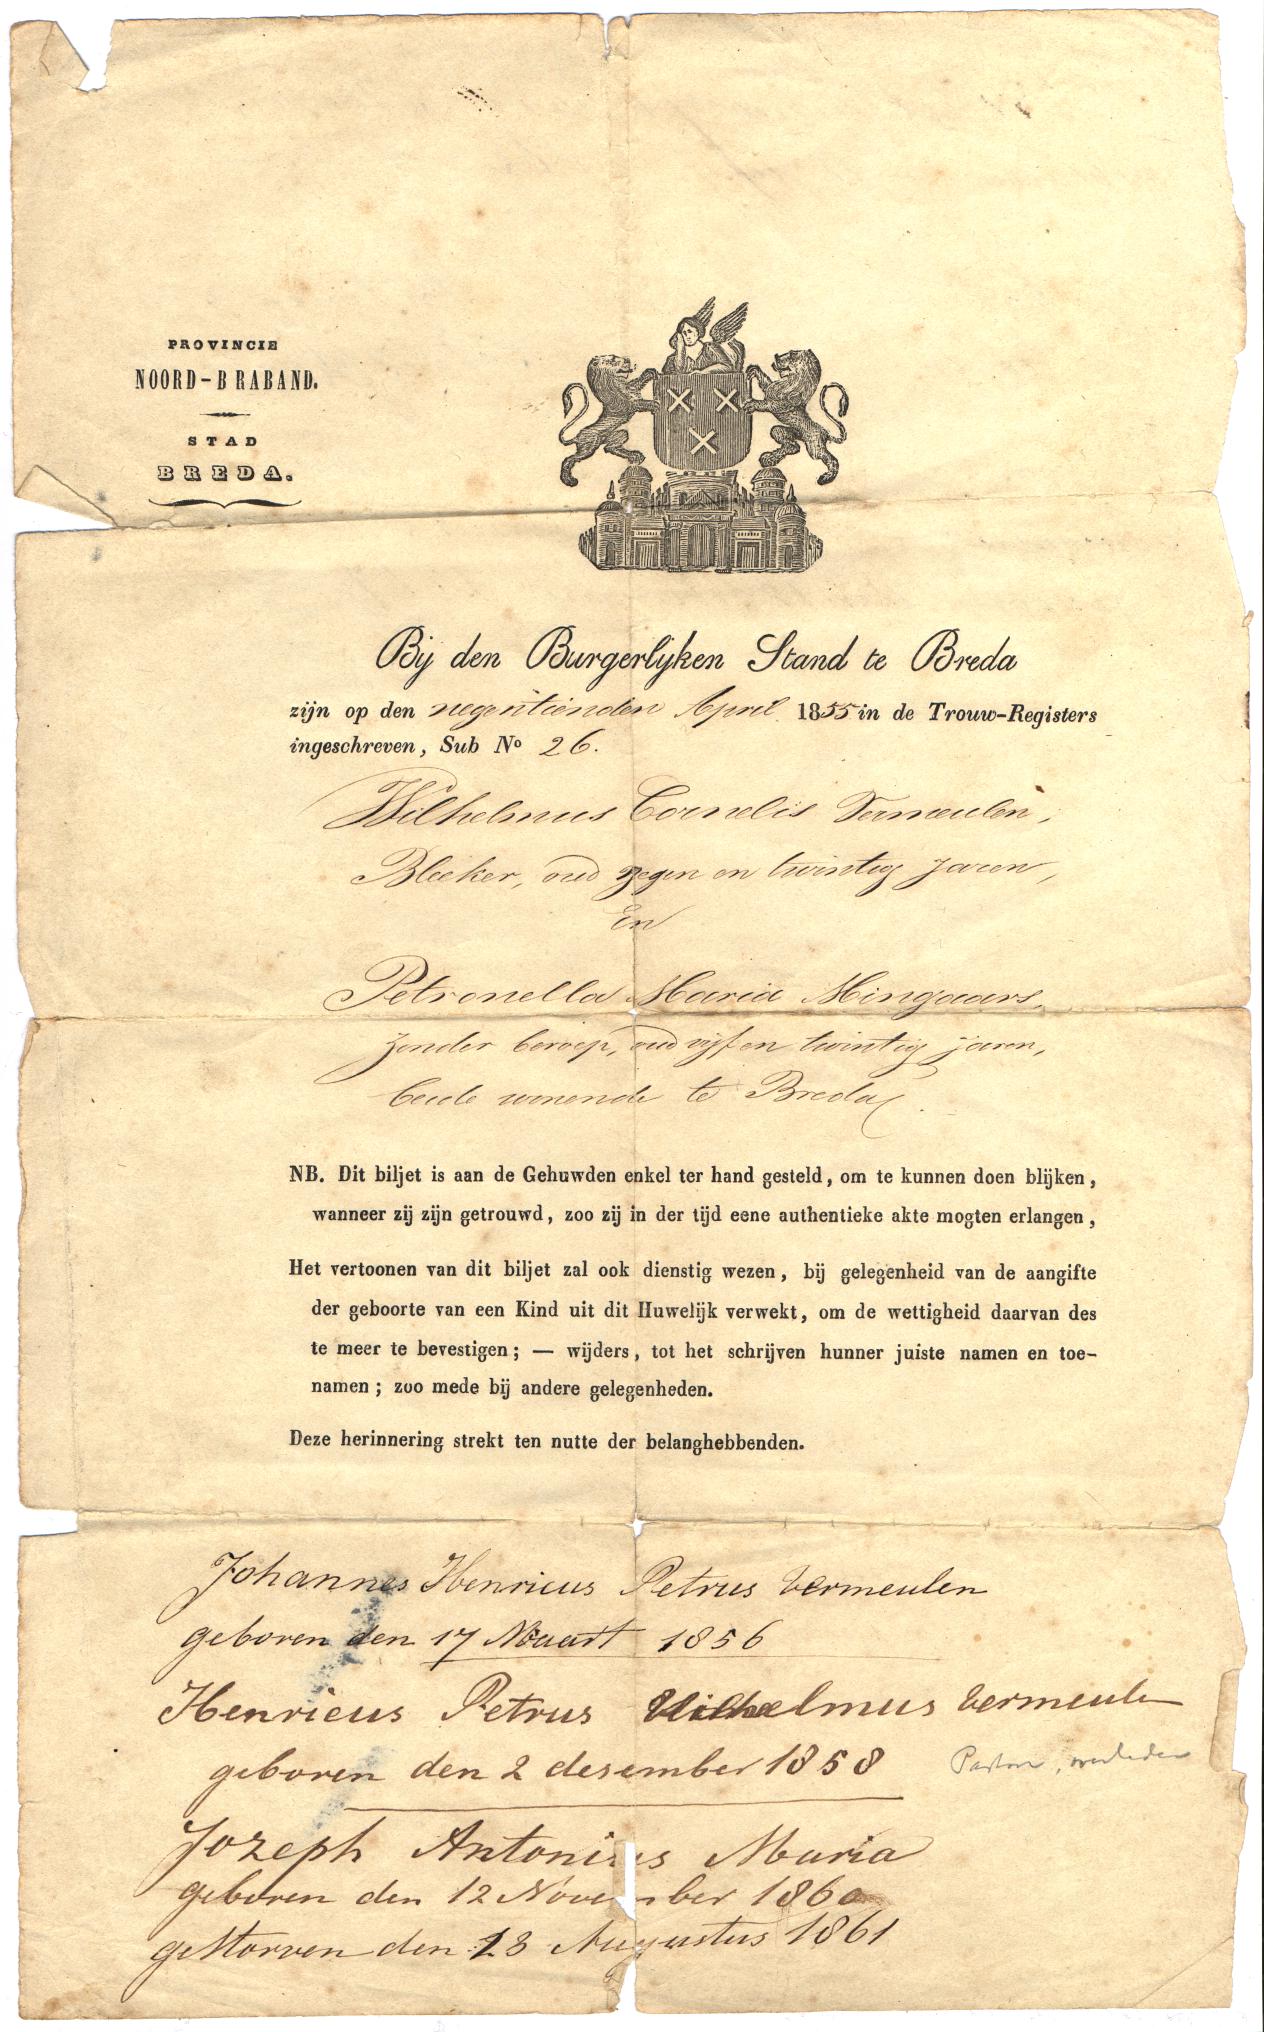 PROVINCIE
NOORD-BRABAND.
STAD
BREDA.
Bij den Burgerlijken Stand te Breda
zijn op den negentienden April 1855 in de Trouw-Registers
ingeschreven, Sub No 26.
Wilhelmus Cornelis Vermeulen,
Bleeker, oud zegen en twintig jaren,
En
Petronella Maria Mingaars,
zonder beroep, oud vijf en twintig jaren,
beide wonende te Breda.
NB. Dit biljet is aan de Gehuwden enkel ter hand gesteld, om te kunnen doen blijken,
wanneer zij zijn getrouwd, zoo zij in der tijd eene authentieke akte mogten erlangen,
Het vertoonen van dit biljet zal ook dienstig wezen, bij gelegenheid van de aangifte
der geboorte van een Kind uit dit Huwelijk verwekt, om de wettigheid daarvan des
te meer te bevestigen; — wijders, tot het schrijven hunner juiste namen en toe-
namen; zoo mede bij andere gelegenheden.
Deze herinnering strekt ten nutte der belanghebbenden.
Johannes Henricus Petrus Vermeulen
geboren den 17 Maart 1856
Henricus Petrus Wilhelmus Vermeulen
geboren den 2 desember 1858 Pastoor, overleden
Jozeph Antonius Maria
geboren den 12 November 1860
gestorven den 23 Augustus 1861